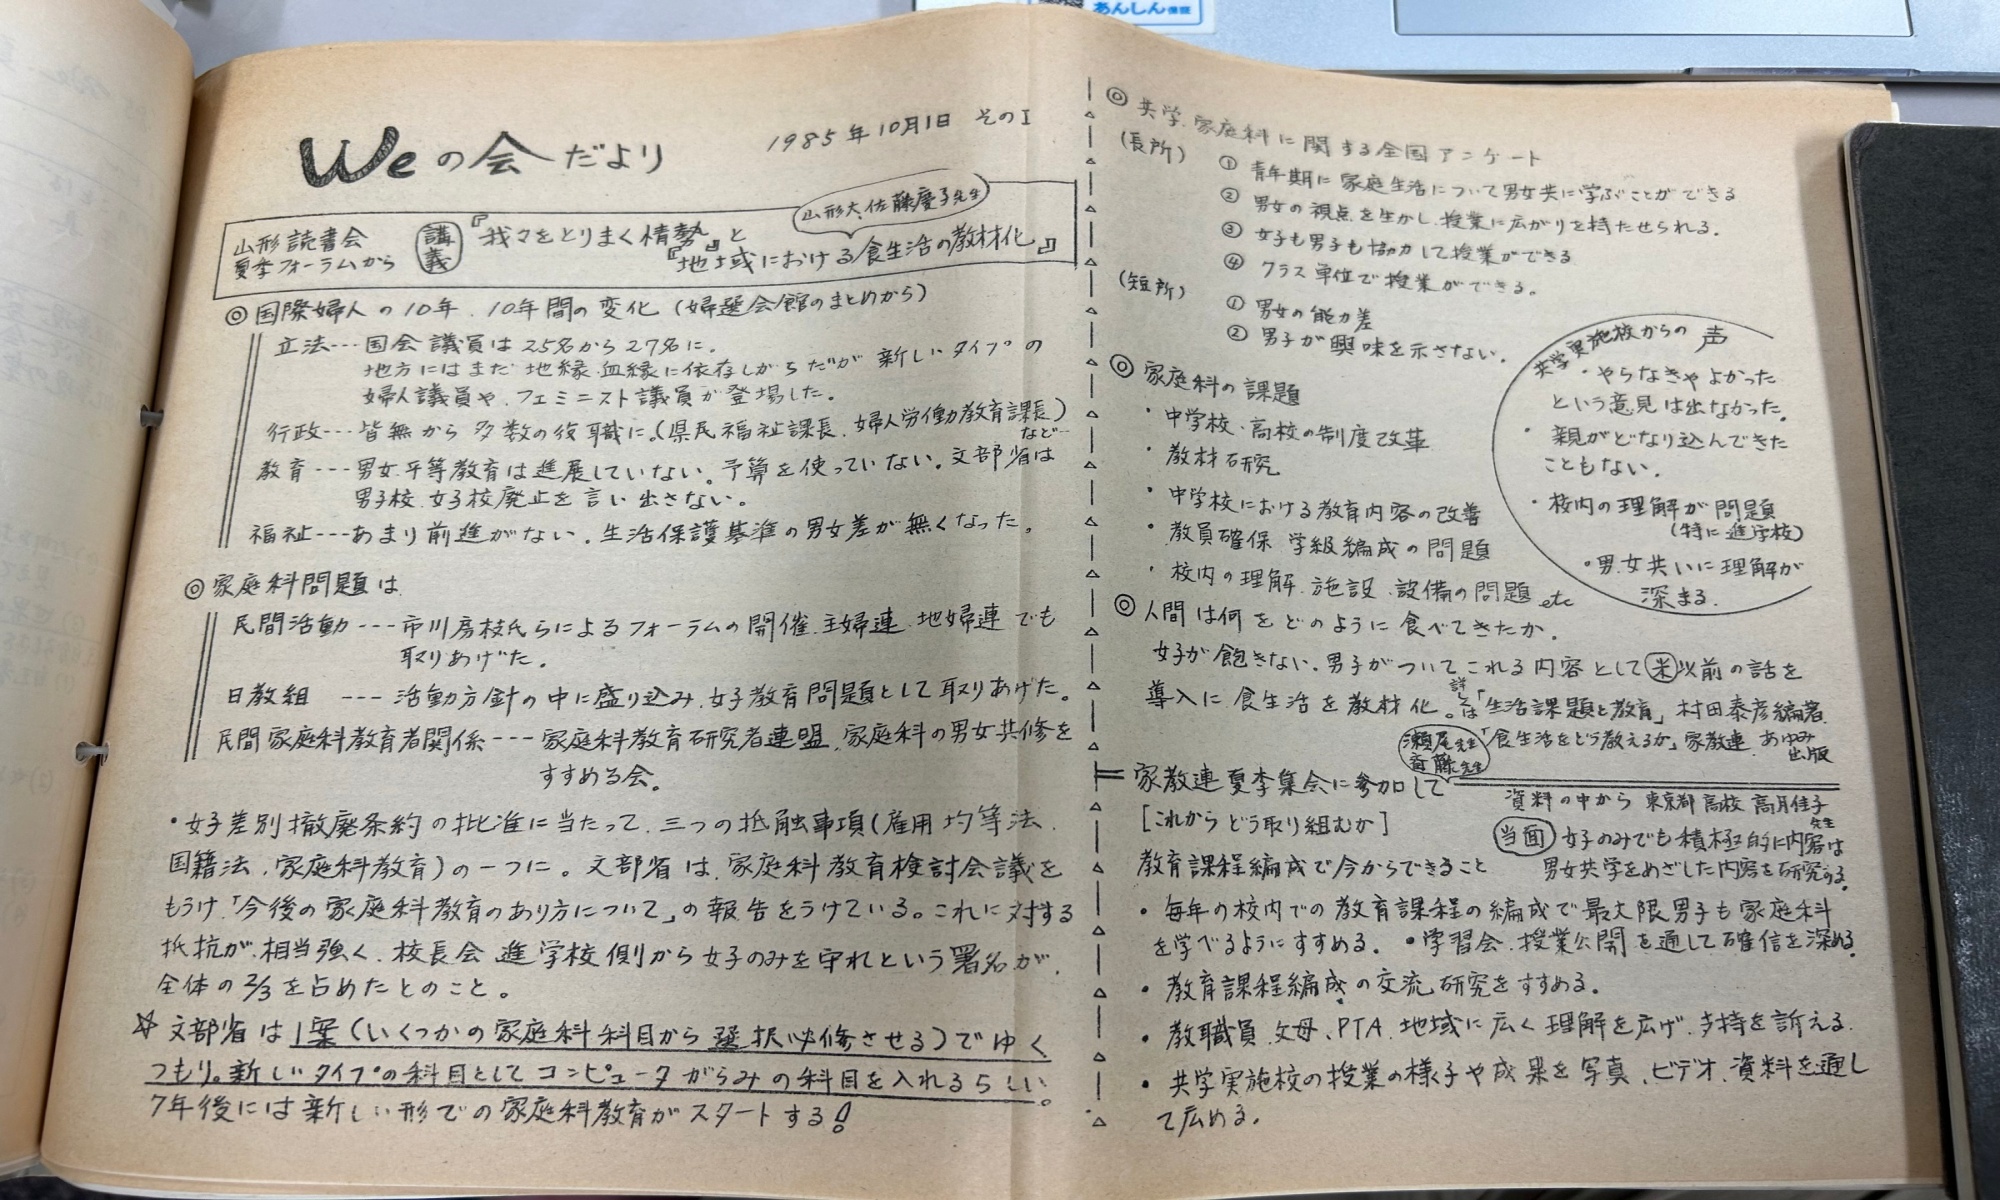 あんしん保証
Weの会だより
1985年10月1日 その1
山形読書会
夏季フォーラムから
講義
『我々をとりまく情勢』と
山形大、佐藤慶子先生
『地域における食生活の教材化』
◎国際婦人の10年、10年間の変化(婦選会館のまとめから)
立法---国会議員は25名から27名に。
地方にはまだ地縁、血縁に依存しがちだが新しいタイプの
婦人議員や、フェミニスト議員が登場した。
行政---皆無から多数の役職に。(県民福祉課長、婦人労働教育課長)
など--
教育---男女平等教育は進展していない。予算を使っていない。文部省は
男子校、女子校廃止を言い出さない。
福祉---あまり前進がない。生活保護基準の男女差が無くなった。
◎家庭科問題は
民間活動---市川房枝氏らによるフォーラムの開催、主婦連、地婦連でも
取りあげた。
日教組 ---活動方針の中に盛り込み、女子教育問題として取りあげた。
民間家庭科教育者関係---家庭科教育研究者連盟、家庭科の男女共修を
すすめる会。
・女子差別撤廃条約の批准に当たって、三つの抵触事項(雇用均等法、
国籍法、家庭科教育)の一つに。文部省は、家庭科教育検討会議を
もうけ、「今後の家庭科教育のあり方について」の報告をうけている。これに対する
抵抗が、相当強く、校長会、進学校側から女子のみを守れという署名が、
全体の2/3を占めたとのこと。
☆文部省は1案(いくつかの家庭科科目から選択必修させる)でゆく
つもり。新しいタイプの科目としてコンピュータがらみの科目を入れるらしい。
7年後には新しい形での家庭科教育がスタートする!
◎共学、家庭科に関する全国アンケート
(長所)
① 青年期に家庭生活について男女共に学ぶことができる
② 男女の視点を生かし、授業に広がりを持たせられる。
③ 女子も男子も協力して授業ができる
④ クラス単位で授業ができる。
(短所)
① 男女の能力差
② 男子が興味を示さない。
◎家庭科の課題
・中学校、高校の制度改革
・教材研究
・中学校における教育内容の改善
・教員確保 学級編成の問題
・校内の理解、施設、設備の問題 etc
共学実施校からの声
・やらなきゃよかった
という意見は出なかった。
・親がどなり込んできた
こともない。
・校内の理解が問題
(特に進学校)
・男女共いに理解が
深まる。
◎人間は何をどのように食べてきたか。
女子が飽きない、男子がついてこれる内容として米以前の話を
導入に食生活を教材化。詳しくは「生活課題と教育」村田泰彦編著
「食生活をどう教えるか」家教連 あゆみ出版
瀬尾先生
斎藤先生
家教連夏季集会に参加して
[これからどう取り組むか]
資料の中から 東京都高校 高月佳子先生
当面 女子のみでも積極的に内容は
男女共学をめざした内容を研究する。
教育課程編成で今からできること
・毎年の校内での教育課程の編成で最大限男子も家庭科
を学べるようにすすめる。 ・学習会、授業公開を通して確信を深める。
・教育課程編成の交流、研究をすすめる。
・教職員、父母、PTA、地域に広く理解を広げ、支持を訴える。
・共学実施校の授業の様子や成果を写真、ビデオ、資料を通し
て広める。